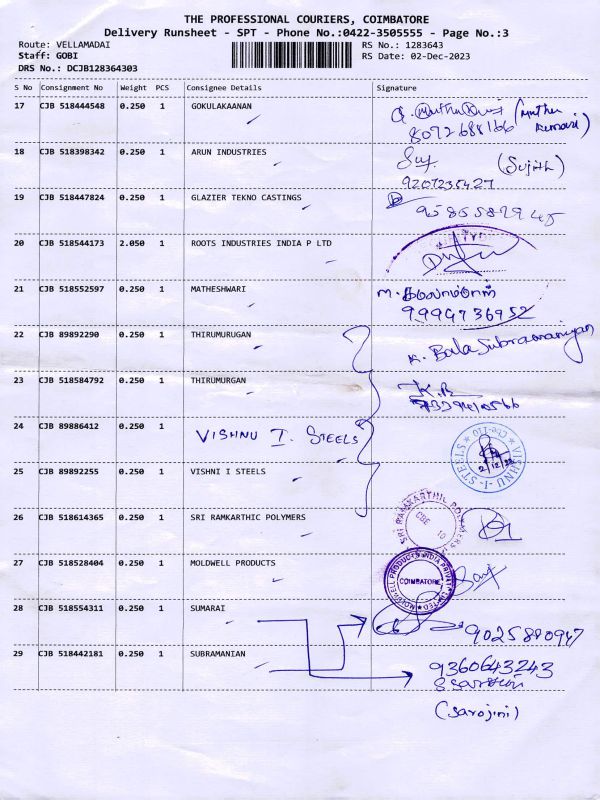 THE PROFESSIONAL COURIERS, COIMBATORE
Delivery Runsheet - SPT - Phone No.:0422-3505555 - Page No.:3
Route: VELLAMADAI RS No.: 1283643
Staff: GOBI RS Date: 02-Dec-2023
DRS No.: DCJB128364303
S No Consignment No Weight PCS Consignee Details Signature
17 CJB 518444548 0.250 1 GOKULAKAANAN
8072688166
18 CJB 518398342 0.250 1 ARUN INDUSTRIES (Sujith)
9207235427
19 CJB 518447824 0.250 1 GLAZIER TEKNO CASTINGS
20 CJB 518544173 2.050 1 ROOTS INDUSTRIES INDIA P LTD
21 CJB 518552597 0.250 1 MATHESHWARI
9999736952
22 CJB 89892290 0.250 1 THIRUMURUGAN K. Balasubramaniyan
23 CJB 518584792 0.250 1 THIRUMURGAN K.B
24 CJB 89886412 0.250 1 VISHNU I. STEELS
VISHNU-I-STEELS
25 CJB 89892255 0.250 1 VISHNI I STEELS
26 CJB 518614365 0.250 1 SRI RAMKARTHIC POLYMERS
SRI RAMKARTHIC POLYMERS
27 CJB 518528404 0.250 1 MOLDWELL PRODUCTS
MOLDWELL PRODUCTS INDIA PRIVATE LIMITED
COIMBATORE
28 CJB 518554311 0.250 1 SUMARAI
9025880947
29 CJB 518442181 0.250 1 SUBRAMANIAN 9360643243
(Sarojini)